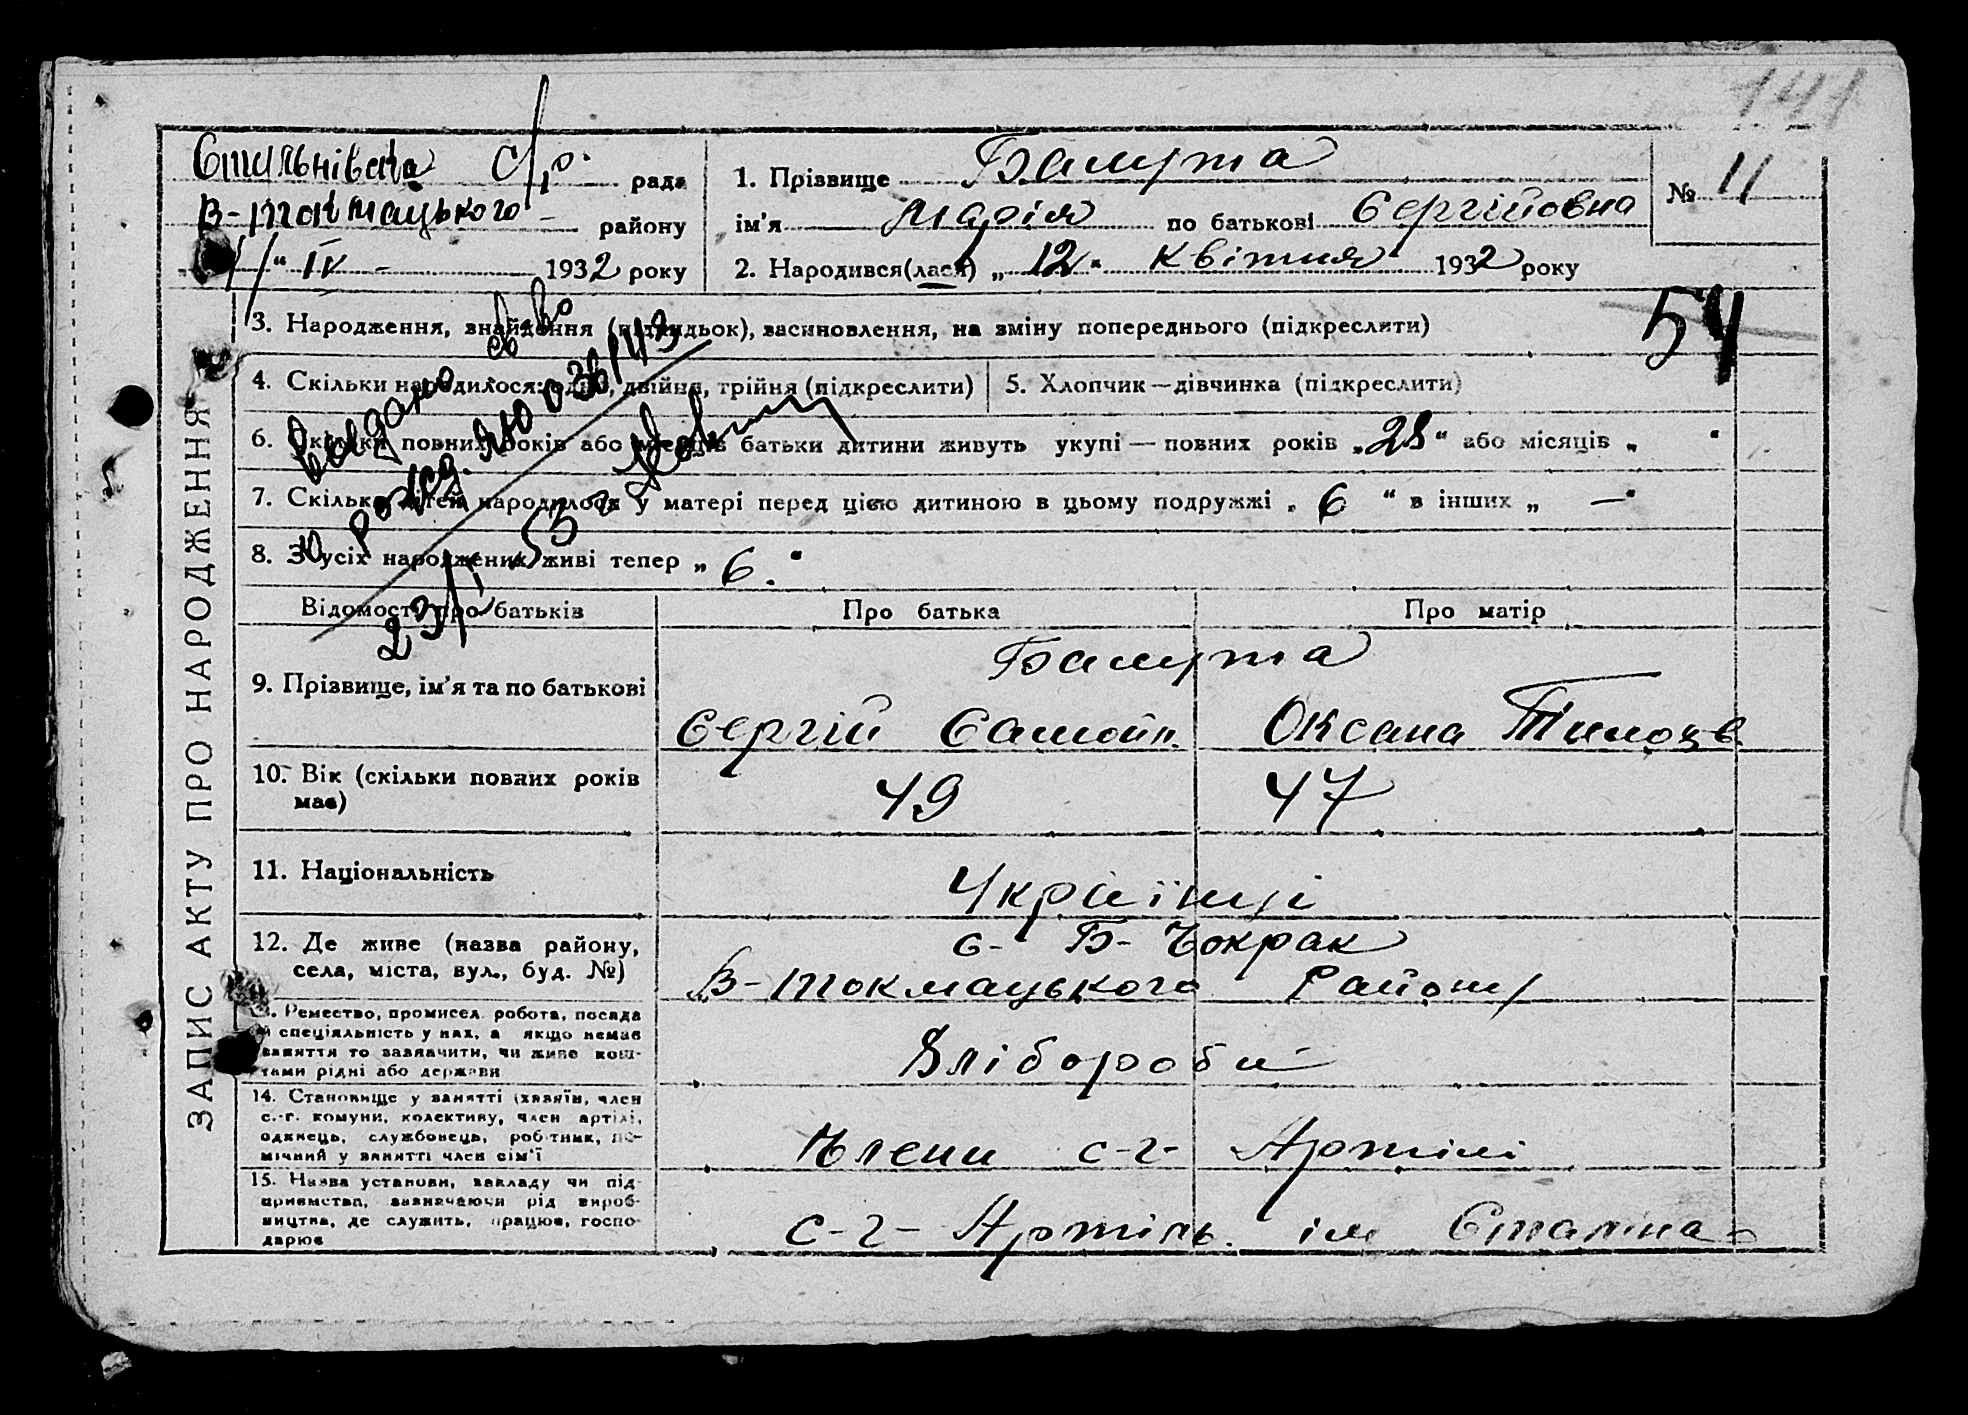 141
Стульнівська с/р рада
В-Токмацького району
"IV - 1932 року
1. Прізвище Балута
ім'я Марія по батькові Сергійовна
2. Народився(лася) „ 12 " Квітня 1932 року
№ 11
54
ЗАПИС АКТУ ПРО НАРОДЖЕННЯ
3. Народження, знайдення (підкидьок), засиновлення, на зміну попереднього (підкреслити)
4. Скільки народилося: одно, двійня, трійня (підкреслити)
5. Хлопчик — дівчинка (підкреслити)
6. Скільки повних років або місяців батьки дитини живуть укупі — повних років „28" або місяців „ "
7. Скільки дітей народилося у матері перед цією дитиною в цьому подружжі „ 6 " в інших „ — "
8. З усіх народжених живі тепер „ 6. "
Выдано св-во
о рожд. 036143
23/V 53 г
Відомості про батьків
Про батька
Про матір
9. Прізвище, ім'я та по батькові
Балута
Сергій Самойл. Оксана Тимофів.
10. Вік (скільки повних років має)
49 47
11. Національність
Українці
12. Де живе (назва району, села, міста, вул., буд. №)
с- Б- Чокрак
В-Токмацького Району
13. Ремество, промисел, робота, посада й спеціяльність у них, а якщо немає
заняття то зазначити, чи живе кош-
тами рідні або держави
Хлібороби
14. Становище у занятті (хазяїн, член
с.-г. комуни, колективу, член артілі,
одинець, службовець, робітник, по-
мічний у занятті член сім'ї
Члени с-г- Артілі
15. Назва установи, закладу чи під-
приємства, зазначаючи рід вироб-
ництва, де служить, працює, госпо-
дарює
с-г- Артіль. ім Сталіна